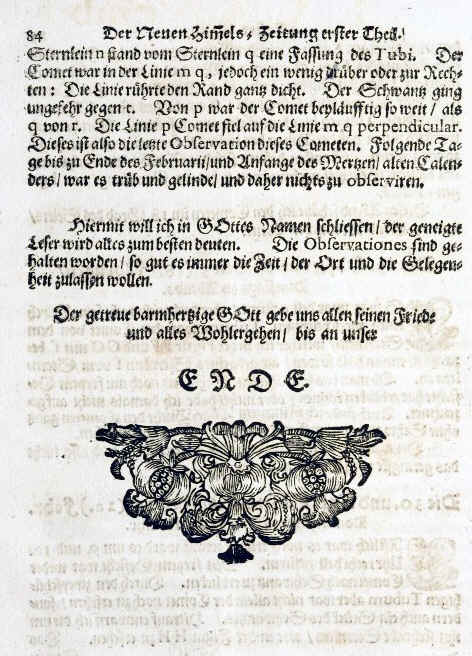 84 Der Neuen Him̄els-Zeitung erster Theil.
Sternlein n stand vom Sternlein q eine Fassung des Tubi. Der
Comet war in der Linie m q, jedoch ein wenig drüber oder zur Rech-
ten: Die Linie rührte den Rand gantz dicht. Der Schwantz ging
ungefehr gegen r. Von p war der Comet beyläufftig so weit/ als
q von r. Die Linie p Comet fiel auf die Linie m q perpendicular.
Dieses ist also die letzte Observation dieses Cometen. Folgende Ta-
ge bis zu Ende des Februarii/ und Anfange des Mertzen/ alten Calen-
ders/ war es trüb und gelinde/ und daher nichts zu observiren.
Hiermit will ich in GOttes Namen schliessen/ der geneigte
Leser wird alles zum besten deuten. Die Observationes sind ge-
halten worden/ so gut es immer die Zeit/ der Ort und die Gelegen-
heit zulassen wollen.
Der getreue barmhertzige GOtt gebe uns allen seinen Friede
und alles Wohlergehen/ bis an unser
ENDE.